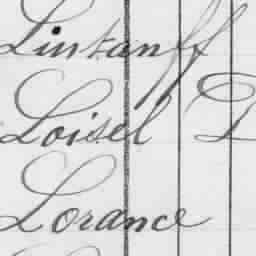 Lintanff
Loisel D
Lorance